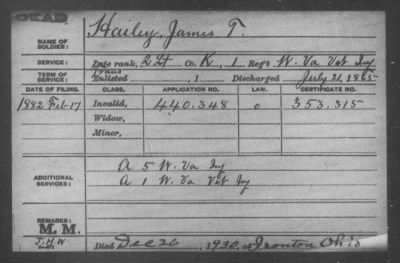 DEAD
NAME OF SOLDIER: Hailey, James T.
SERVICE: Late rank, 2 Lt Co. K, 1 Reg't W. Va Vet Inf
TERM OF SERVICE: Enlisted , 1 Discharged July 21, 1865
DATE OF FILING. CLASS. APPLICATION NO. LAW. CERTIFICATE NO.
1882 Feb-17 Invalid, 440.348 o 353.315
Widow,
Minor,
ADDITIONAL SERVICES: A 5 W. Va Inf
A 1 W. Va Vet Inf
REMARKS:
M. M.
Died Dec 26, 1930, at Ironton Ohio